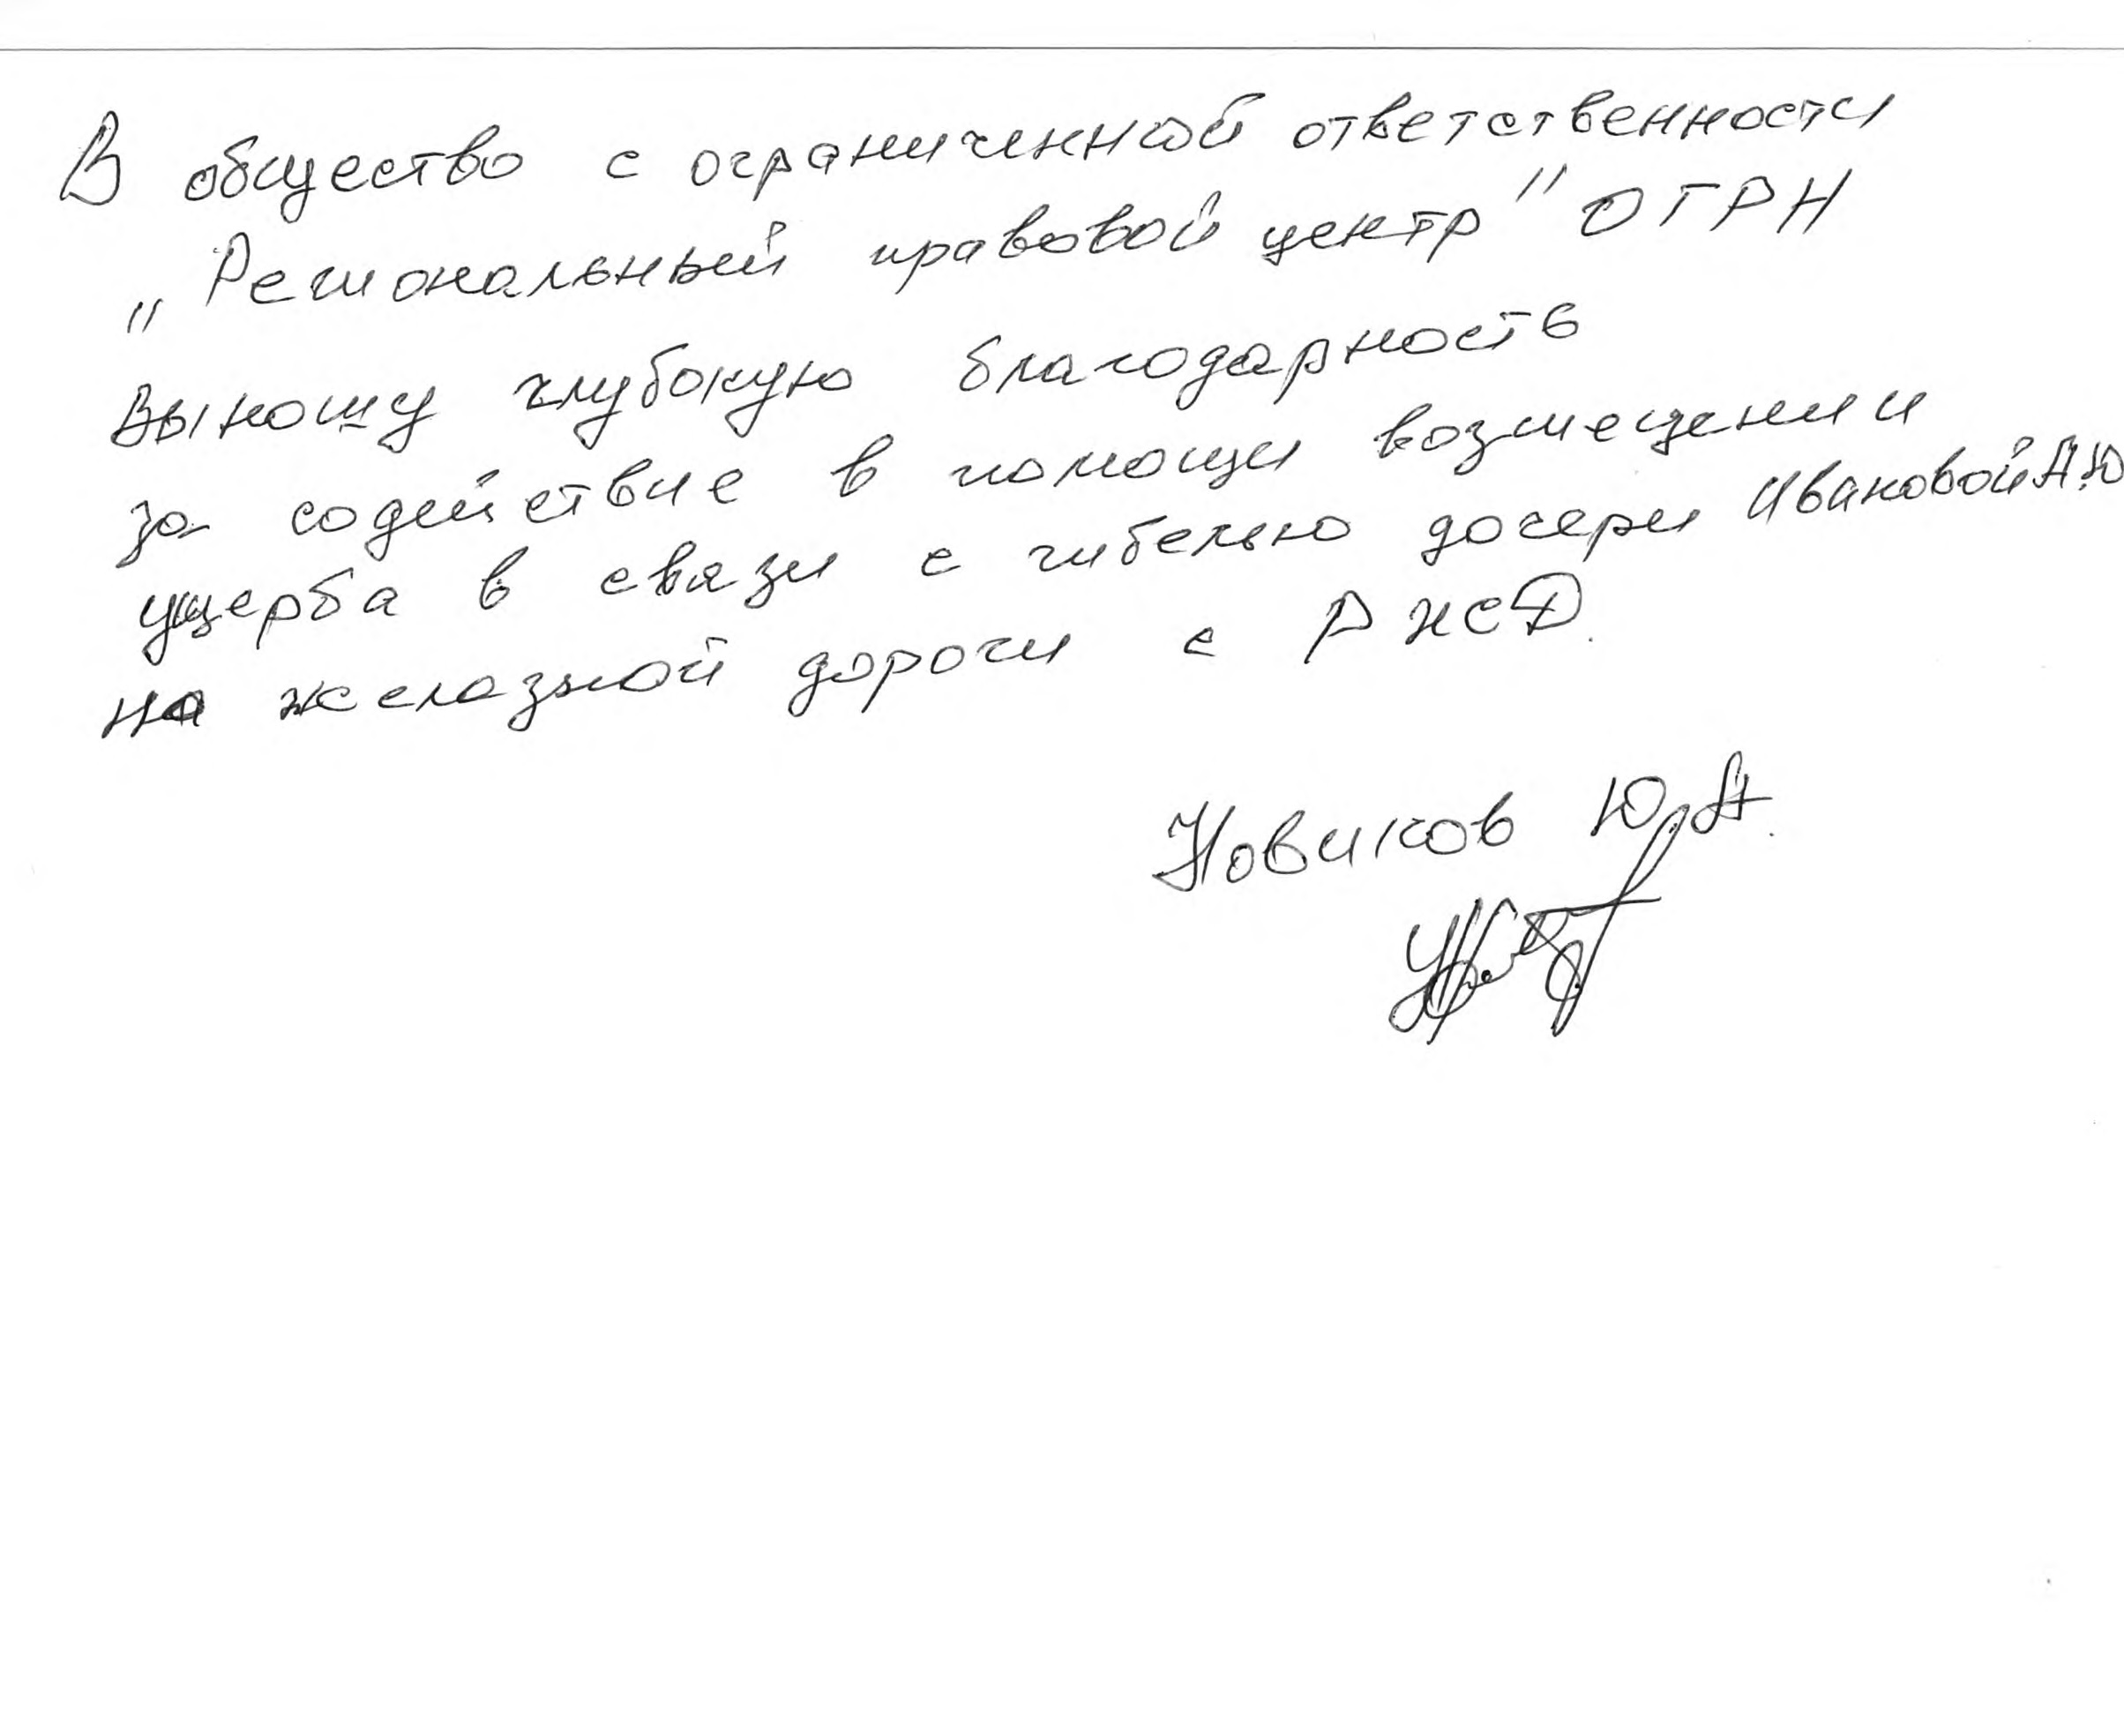 В общество с ограниченной ответственности
„Региональный правовой центр" ОГРН
выношу глубокую благодарность
за содействие в помощи возмещении
ущерба в связи с гибелью дочери Ивановой А.Ю
на железной дороги с РЖД.
Новиков Ю.А.